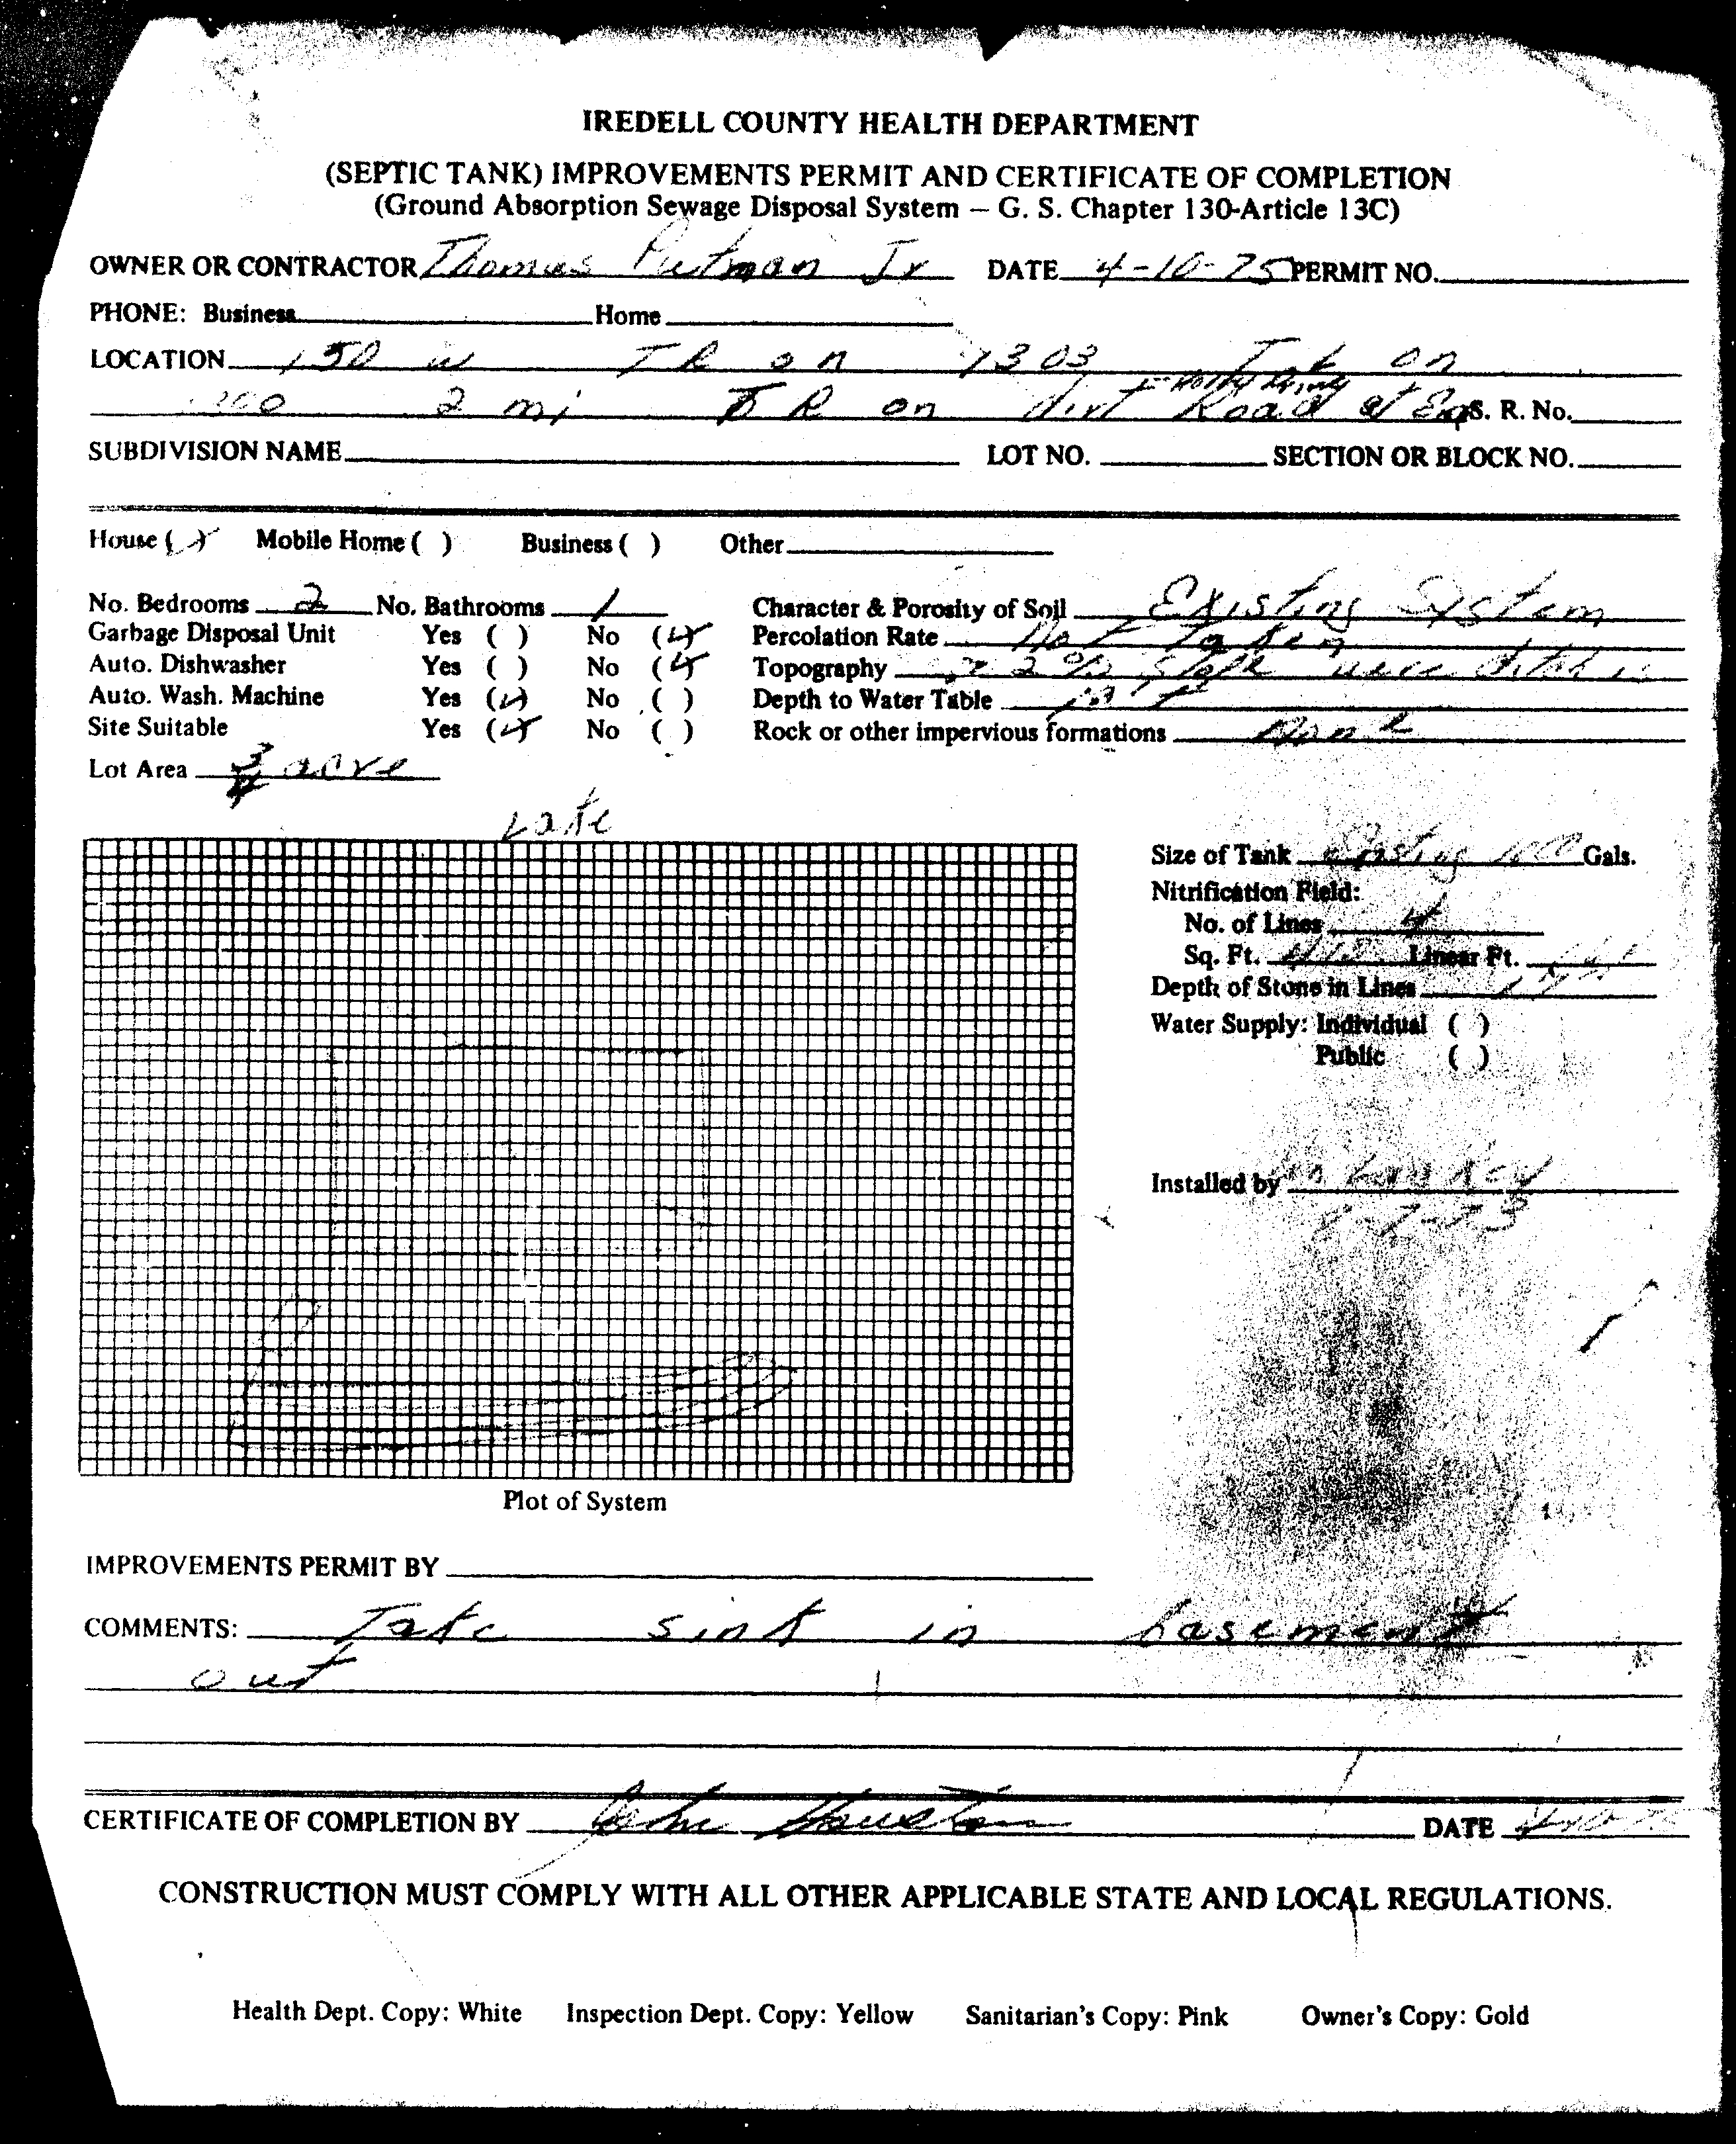 IREDELL COUNTY HEALTH DEPARTMENT
(SEPTIC TANK) IMPROVEMENTS PERMIT AND CERTIFICATE OF COMPLETION
(Ground Absorption Sewage Disposal System – G. S. Chapter 130-Article 13C)
OWNER OR CONTRACTOR Thomas Putman Jr DATE 4-10-75 PERMIT NO.
PHONE: Business Home
LOCATION 150 w T R on 1303 on
2 mi T R on dirt Road at End S. R. No.
SUBDIVISION NAME LOT NO. SECTION OR BLOCK NO.
House (✓) Mobile Home ( ) Business ( ) Other
No. Bedrooms 2 No. Bathrooms 1 Character & Porosity of Soil Existing System
Garbage Disposal Unit Yes ( ) No (✓) Percolation Rate Not Taken
Auto. Dishwasher Yes ( ) No (✓) Topography 2% slope
Auto. Wash. Machine Yes (✓) No ( ) Depth to Water Table
Site Suitable Yes (✓) No ( ) Rock or other impervious formations None
Lot Area 3/4 acre
Lake
Size of Tank existing Gals.
Nitrification Field:
No. of Lines 4
Sq. Ft. Linear Ft.
Depth of Stone in Lines
Water Supply: Individual ( )
Public ( )
Installed by
Plot of System
IMPROVEMENTS PERMIT BY
COMMENTS: Take sink in basement
out
CERTIFICATE OF COMPLETION BY John Houston DATE
CONSTRUCTION MUST COMPLY WITH ALL OTHER APPLICABLE STATE AND LOCAL REGULATIONS.
Health Dept. Copy: White Inspection Dept. Copy: Yellow Sanitarian's Copy: Pink Owner's Copy: Gold